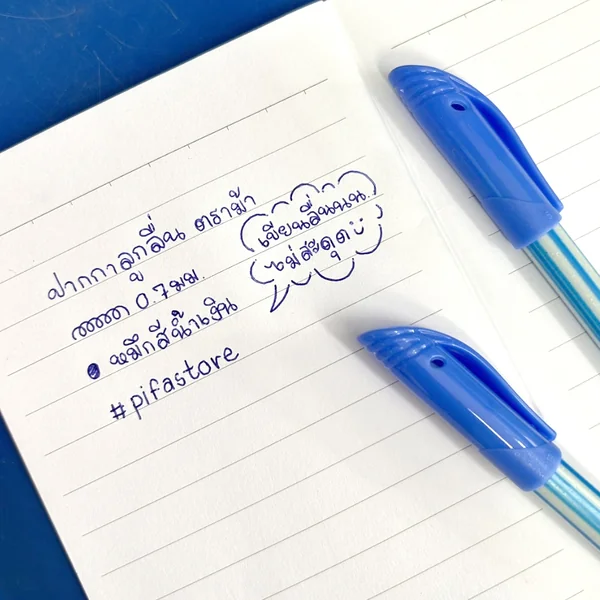 ปากกาลูกลื่น ตราม้า
0.7 มม.
หมึกสีน้ำเงิน
#pifastore
เขียนลื่นนน
ไม่สะดุด